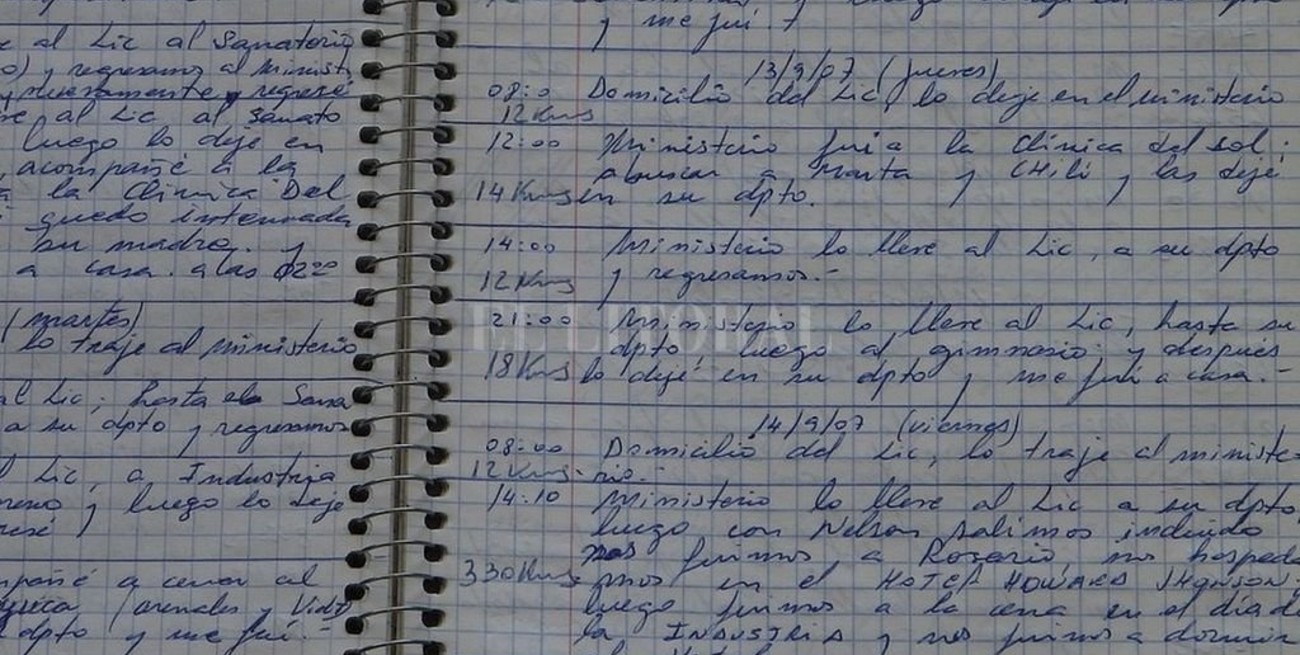 e al Lic al Sanatorio
o) y regresamos al Minist
y nuevamente, regresé
re al Lic al Sanato
luego lo dejé en
acompañé a la
a la Clínica Del
quedo internada
su madre. y
a casa. a las
(martes)
lo traje al ministerio
al Lic; hasta el Sana
a su dpto y regresamos
l Lic, a Industria
y luego lo deje
mpañé a cenar al
(arenales y
dpto y me fui.-
y me fui.
13/9/07 (jueves)
08:0 Domicilio del Lic, lo deje en el ministerio
12Kms
12:00 Ministerio fui a la Clínica del Sol;
a buscar a Marta y CHili y las dejé
14Kms en su dpto.
14:00 Ministerio lo lleve al Lic, a su dpto
12Kms y regresamos.-
EL LITORAL
21:00 Ministerio lo lleve al Lic, hasta su
dpto, luego al gimnasio; y después
18Kms lo dejé en su dpto y me fui a casa.-
14/9/07 (viernes)
08:00 Domicilio del Lic, lo traje al ministe-
12Kms.- rio.-
14:10 Ministerio lo lleve al Lic a su dpto,
luego con Nelson salimos
nos fuimos a Rosario, nos hospeda
330Kms mos en el HOTEL HOWARD JHONSON;
luego fuimos a la cena en el día d
la INDUSTRIA y nos fuimos a dormir